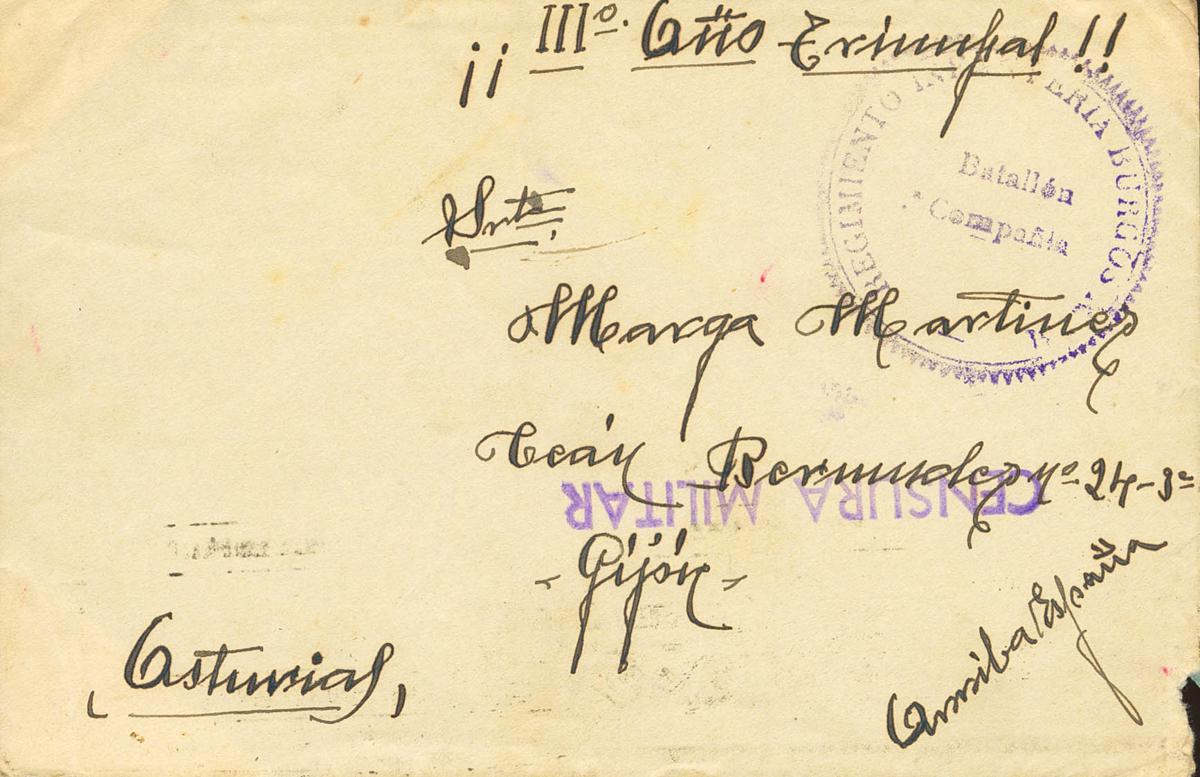 ¡¡ IIIº. Año Triunfal !!
REGIMIENTO INFANTERIA BURGOS
Batallón
Compañia
Srta.
Marga Martinez
Ceán Bermudez nº 24-3º
CENSURA MILITAR
- Gijón -
(Asturias)
Arriba España